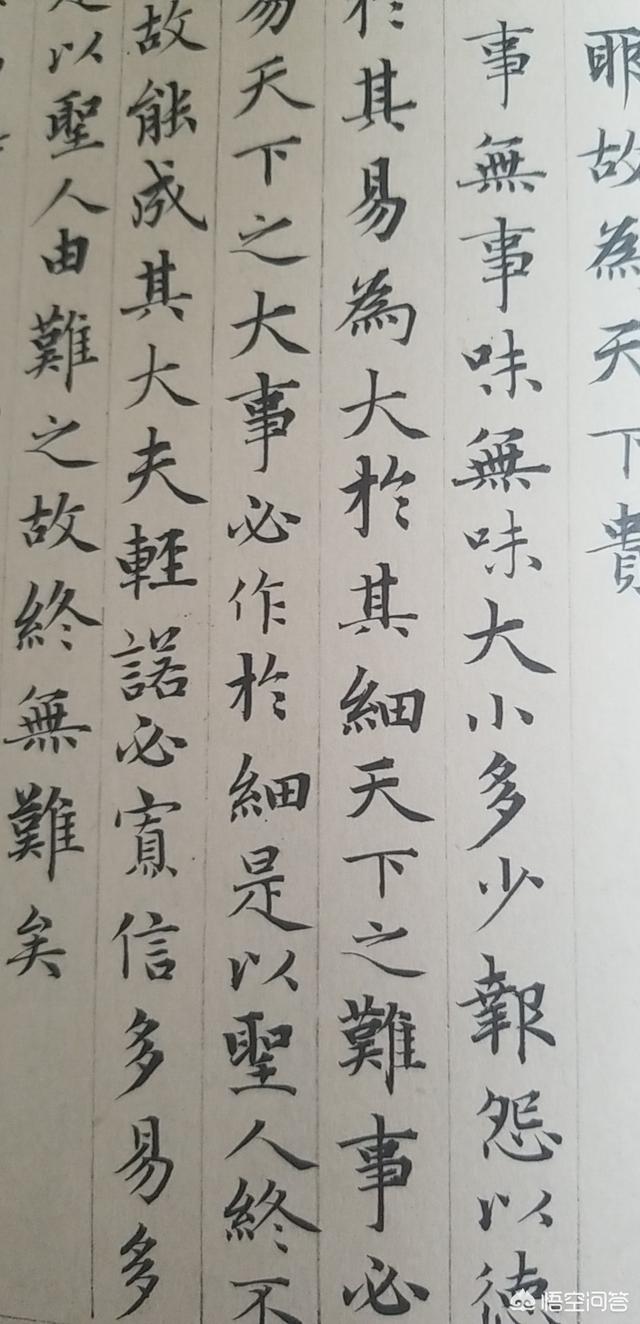 耶故為天下貴
事無事味無味大小多少報怨以德
於其易為大於其細天下之難事必
易天下之大事必作於細是以聖人終不
故能成其大夫輕諾必寡信多易多
是以聖人由難之故終無難矣
悟空问答